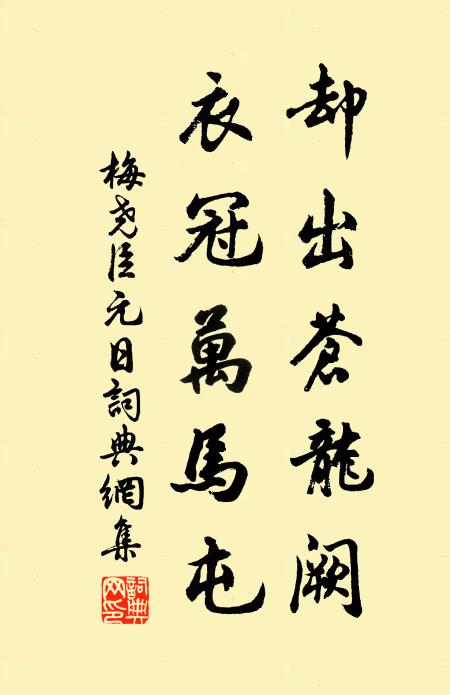 却出蒼龍闕
衣冠萬馬屯
梅堯臣元日詞典網集
詞典網印